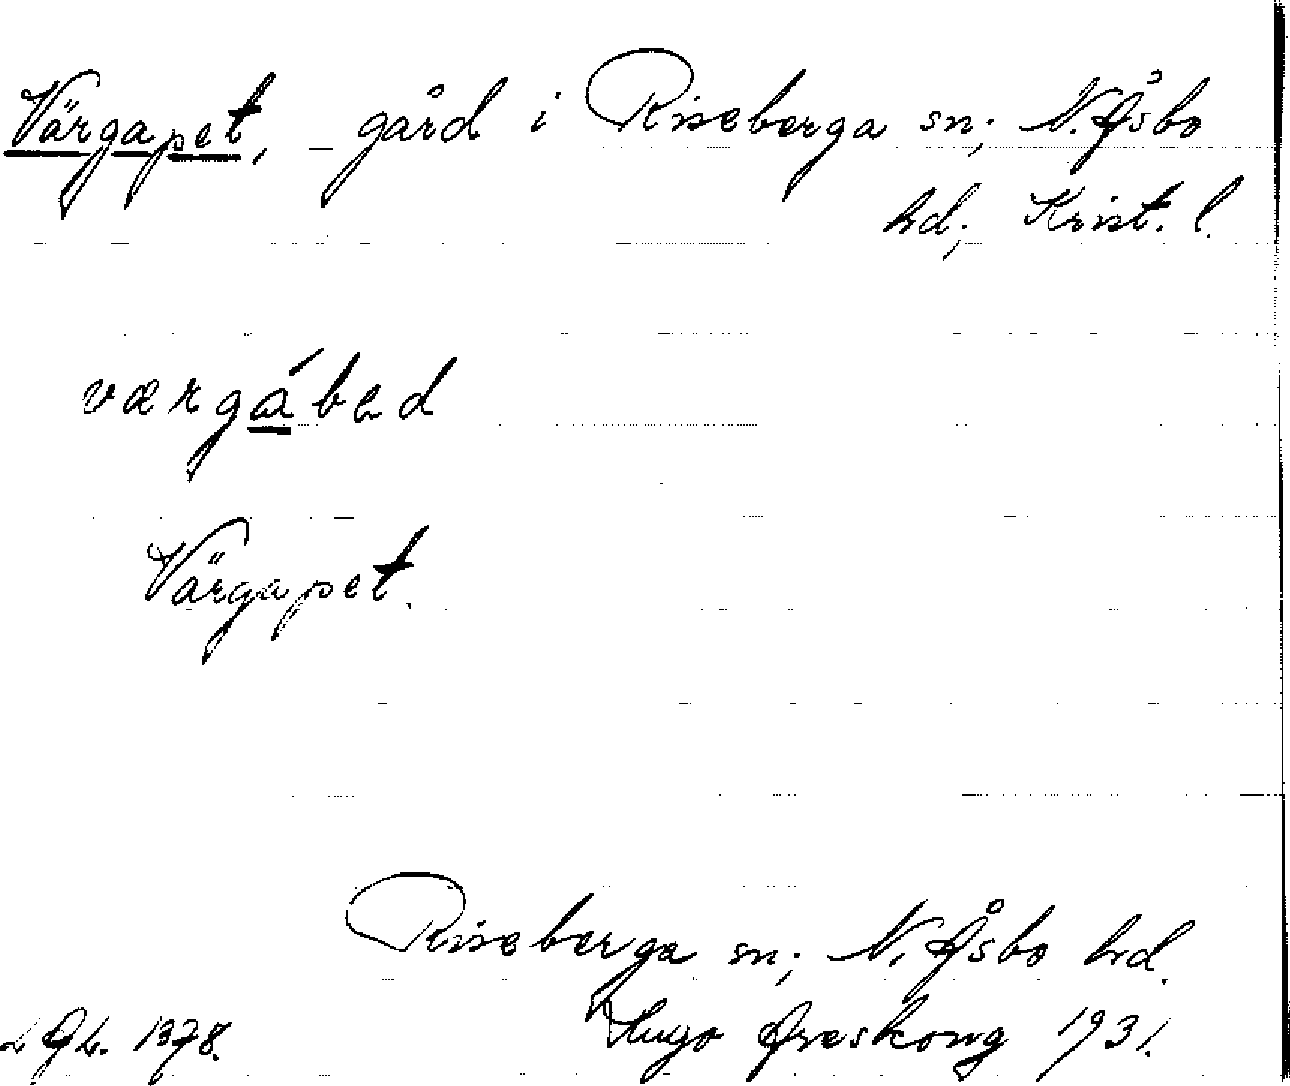 Värgapet, gård i Riseberga sn; N. Åsbo
hd; Krist. l.
værgábed
Värgapet.
Riseberga sn; N. Åsbo hd.
Hugo Areskoug 1931.
1378.